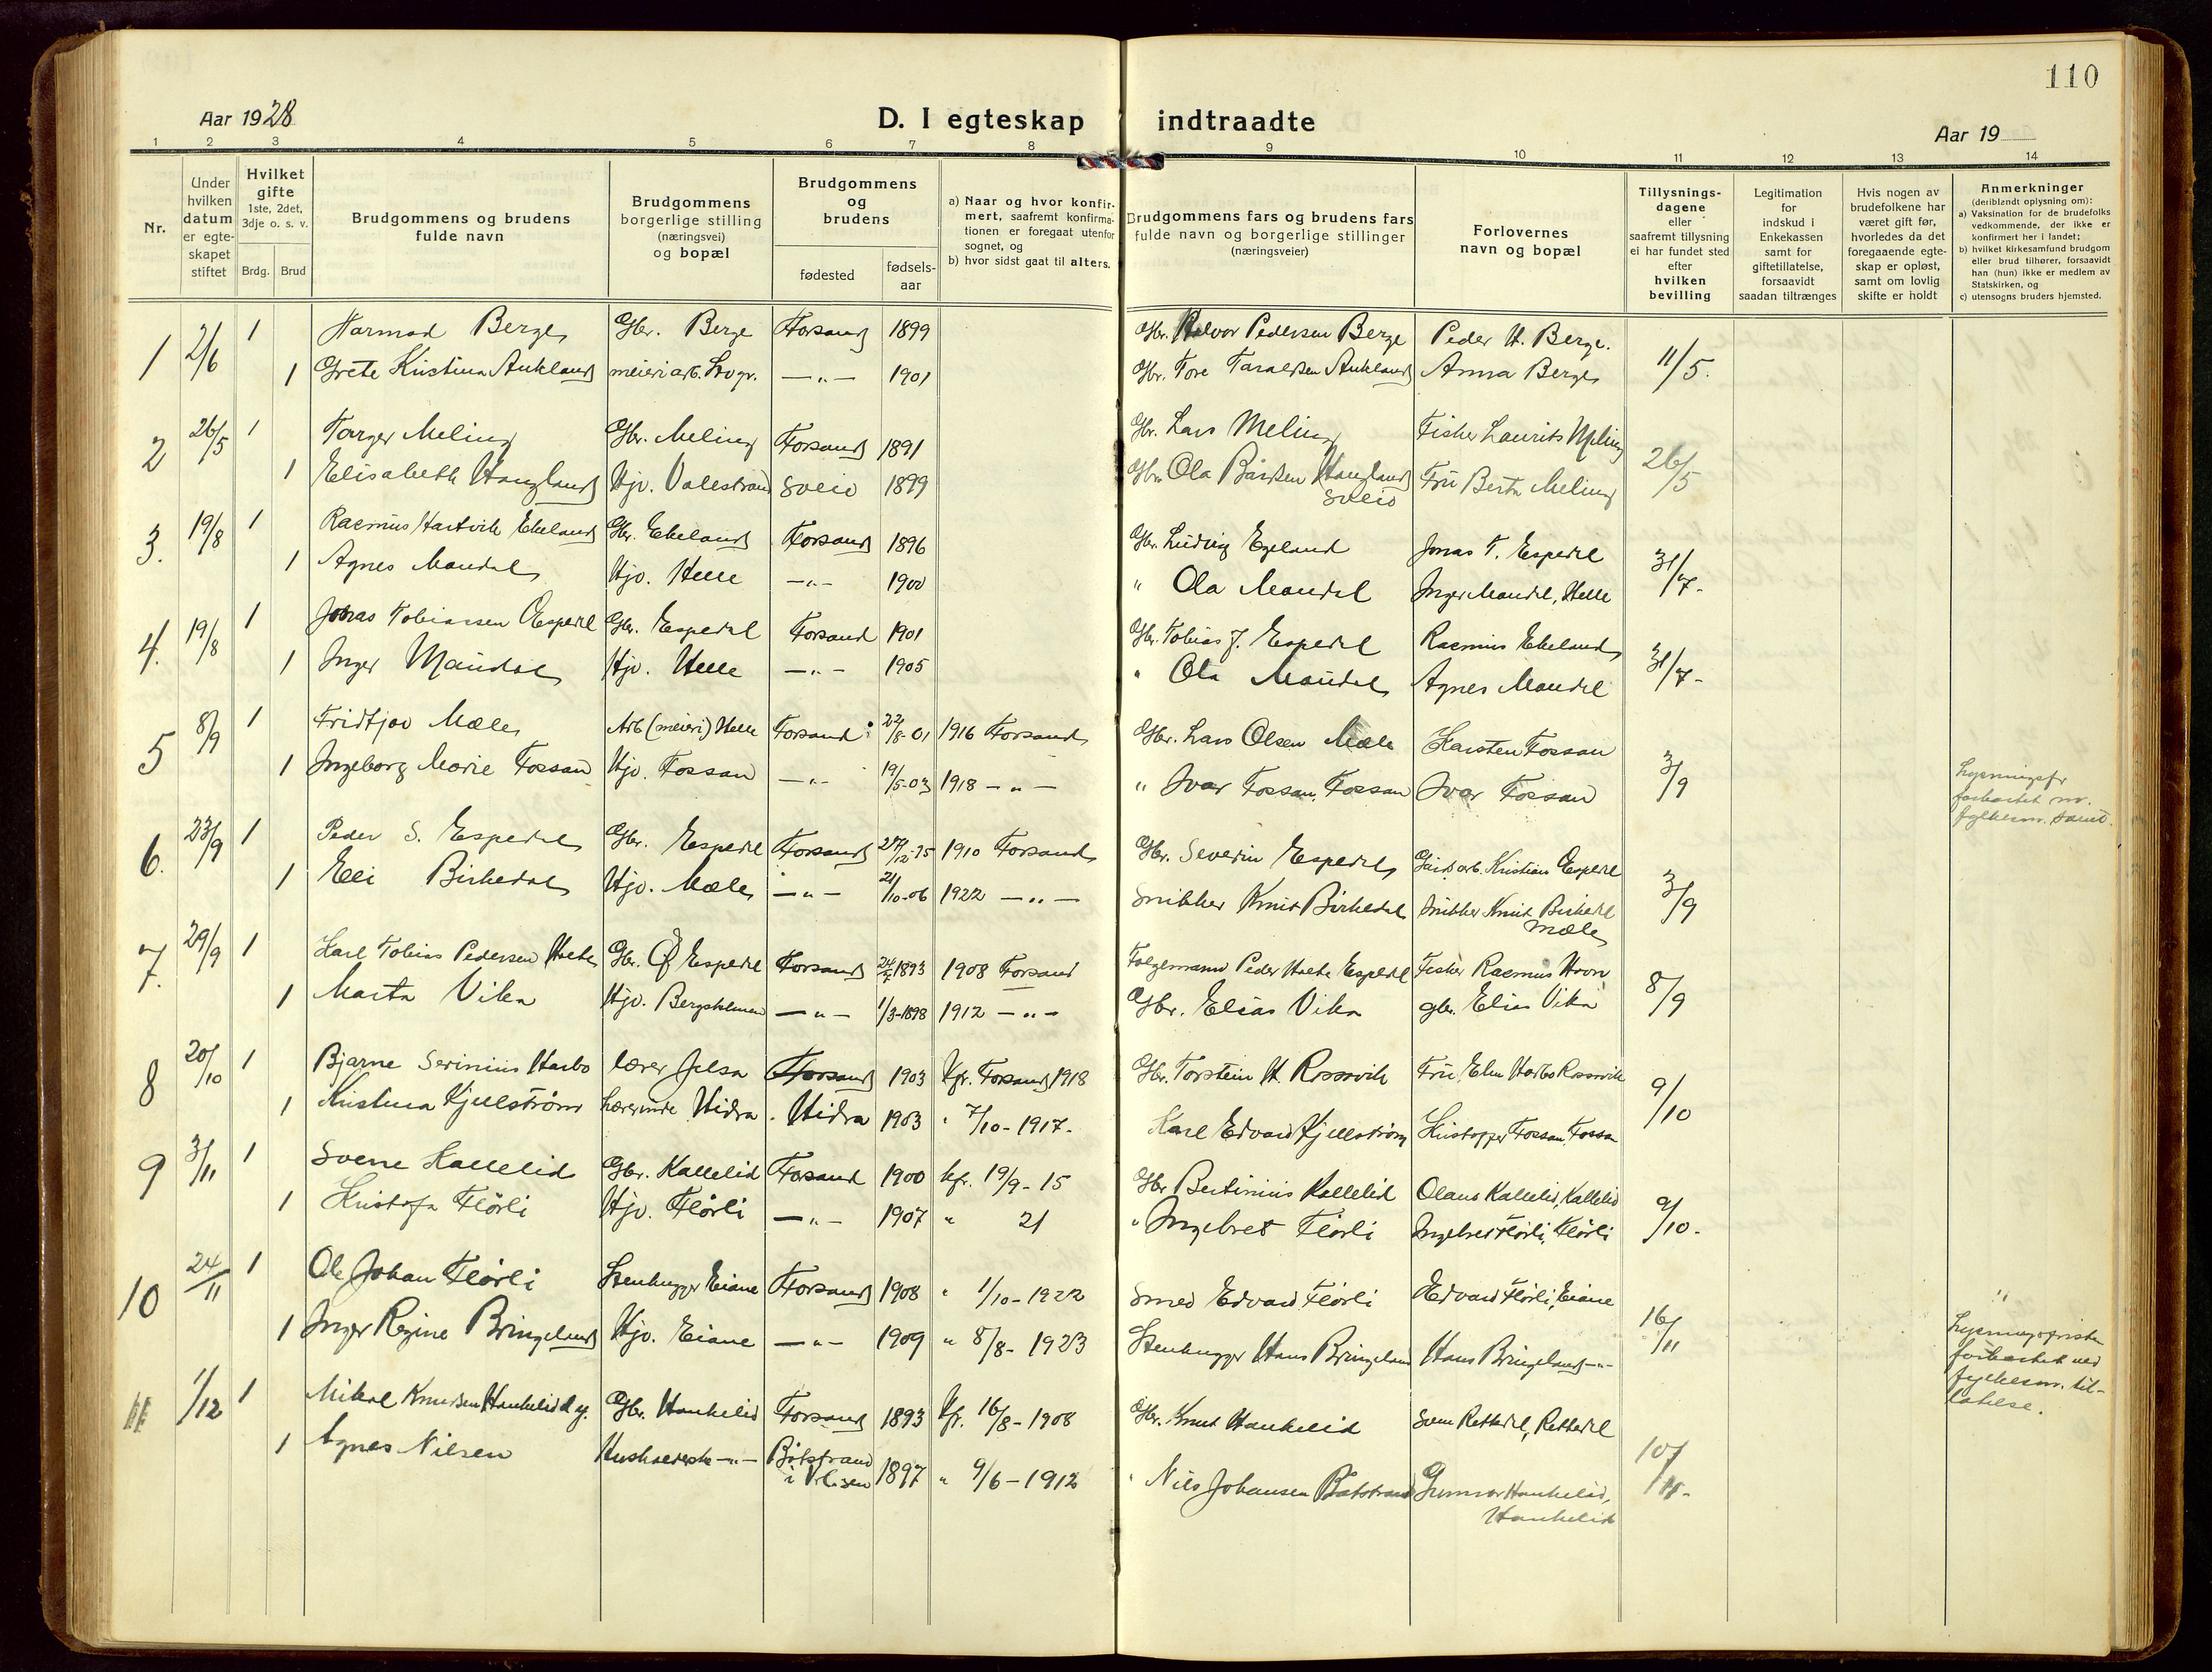 110
Aar 1928
D. I egteskap indtraadte
Aar 19
1 2 3 4 5 6 7 8 9 10 11 12 13 14
Nr.
Under hvilken datum er egte-skapet stiftet
Hvilket gifte 1ste, 2det, 3dje o. s. v.
Brdg. Brud
Brudgommens og brudens fulde navn
Brudgommens borgerlige stilling (næringsvei) og bopæl
Brudgommens og brudens
fødested
fødsels-aar
a) Naar og hvor konfir-mert, saafremt konfirma-tionen er foregaat utenfor sognet, og
b) hvor sidst gaat til alters.
Brudgommens fars og brudens fars fulde navn og borgerlige stillinger (næringsveier)
Forlovernes navn og bopæl
Tillysnings-dagene eller saafremt tillysning ei har fundet sted efter hvilken bevilling
Legitimation for indskud i Enkekassen samt for giftetillatelse, forsaavidt saadan tiltrænges
Hvis nogen av brudefolkene har været gift før, hvorledes da det foregaaende egte-skap er opløst, samt om lovlig skifte er holdt
Anmerkninger (deriblandt oplysning om):
a) Vaksination for de brudefolks vedkommende, der ikke er konfirmert her i landet;
b) hvilket kirkesamfund brudgom eller brud tilhører, forsaavidt han (hun) ikke er medlem av Statskirken, og
c) utensogns bruders hjemsted.
1 2/6 1 Harmod Berge Gbr. Berge Forsand 1899 Gbr. Halvor Pedersen Berge Peder H. Berge. 11/5.
1 Grete Kristina Aukland meieriarb. Sogn. —"— 1901 Gbr. Tore Taraldsen Aukland Anna Berge
2 26/5 1 Torger Meling Gbr. Meling Forsand 1891 Gbr. Lars Meling Fisker Laurits Meling 26/5
1 Elisabeth Haugland Hjv. Valestrand Sveio 1899 Gbr. Ola Bårdsen Haugland Sveio Fru Berta Meling
3. 19/8 1 Rasmus Hartvik Ekeland Gbr. Ekeland Forsand 1896 Gbr. Ludvig Egeland Jonas T. Espedal 31/7-
1 Agnes Maudal Hjv. Helle —"— 1900 " Ola Maudal Inger Maudal, Helle
4. 19/8 1 Jonas Tobiassen Espedal Gbr. Espedal Forsand 1901 Gbr. Tobias J. Espedal Rasmus Ekeland 31/7-
1 Inger Maudal Hjv. Helle —"— 1905 " Ola Maudal Agnes Maudal
5 8/9 1 Fridtjov Mæle Arb (meieri) Helle Forsand 22/8-01 1916 Forsand Gbr. Lars Olsen Mæle Karsten Fossan 3/9
1 Ingeborg Marie Fossan Hjv. Fossan —"— 19/5-03 1918 —"— " Ivar Fossan, Fossan Ivar Fossan
6. 23/9 1 Peder S. Espedal Gbr. Espedal Forsand 1910 Forsand Gbr. Severin Espedal Gårdsarb. Kristian Espedal 3/9
1 Elli Birkedal Hjv. Mæle —"— 21/10-06 1922 —"— Snikker Knut Birkedal Snikker Knut Birkedal Mæle
7. 29/9 1 Karl Tobias Pedersen Gbr. Espedal Forsand 1893 1908 Forsand Folgemann Peder Espedal Fisker Rasmus 8/9
1 Marta Vika Hjv. —"— 1/3-1898 1912 —"— Gbr. Elias Vika gbr. Elias Vika
8 20/10 1 Bjarne Serinius Harbo lærer Jelsa Forsand 1903 Kfr. Forsand 1918 Gbr. Torstein H. Rossavik Fru Elen Harbo Rossavik 9/10
1 Kristina Kjellstrøm Lærerinde Hidra. Hidra 1903 " 7/10-1917. Karl Edvard Kjellstrøm Kristoffer Fossan, Fossan
9 3/11 1 Sverre Kallelid Gbr. Kallelid Forsand 1900 kfr. 19/9-15 Gbr Bertinius Kallelid Olaus Kallelid, Kallelid 9/10.
1 Kristofa Flörli Hjv. Flörli —"— 1907 " 21 " Ingebret Flörli Ingebret Flörli, Flörli
10 24/11 1 Ole Johan Flörli Stenhugger Eiane Forsand 1908 " 1/10-1922 Smed Edvard Flörli Edvard Flörli, Eiane 16/11
1 Inger Regine Bringeland Hjv. Eiane —"— 1909 " 5/8-1923 Stenhugger Hans Bringeland Hans Bringeland —"—
11 1/12 1 Mikal Knudsen Haukelid d.y. Gbr. Haukelid Forsand 1893 Kfr. 16/8-1908 Gbr. Knut Haukelid Sven Rettedal, Rettedal 10/11.
1 Agnes Nilsen Husholderske —"— Båtstrand i 1897 " 9/6-1912 " Nils Johansen Båtstrand Gunnar Haukelid, Haukelid
Lysningsfr forkortet av. fylkesm.
" Lysningsfristen forkortet ved fylkesm. til-latelse.